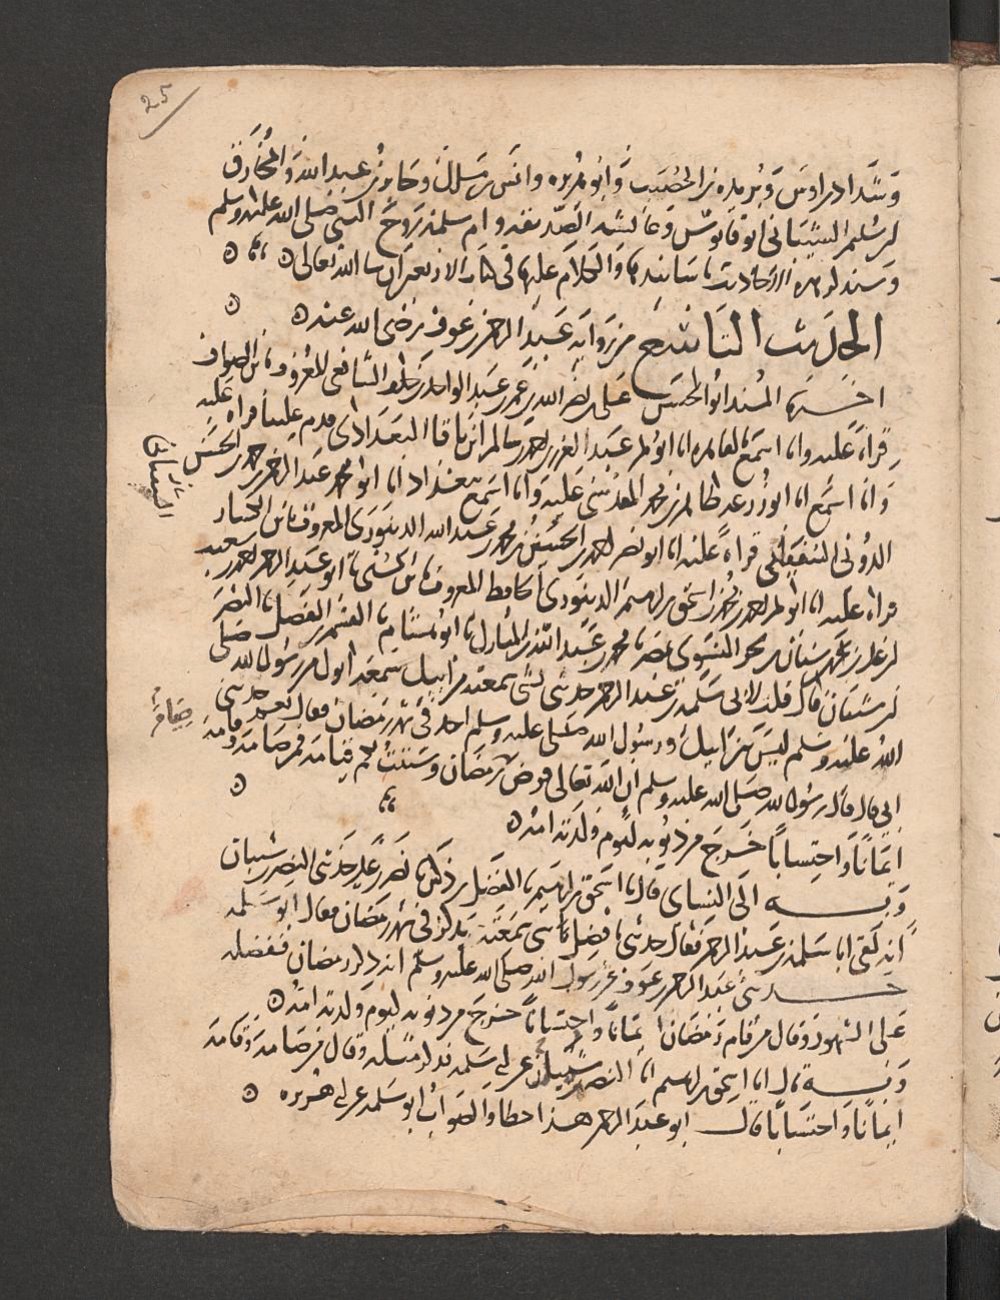 25
وشداد بن اوس وبريده بن الحصيب وابو هريره وانس بن مالك وجابر بن عبد الله والمخارق
بن سليم الشيباني ابو قابوس وعائشه الصديقه وام سلمه زوج النبي صلى الله عليه وسلم
وسنذكر هذه الاحاديث باسانيدها والكلام عليها في كتاب الاربعين ان شا الله تعالى
الحديث التاسع من رواية عبد الرحمن بن عوف رضي الله عنه
اخبرنا المسند ابو الحسن على بن نصر الله بن عمر بن عبد الواحد الشافعي المعروف بابن الصواف
قراة عليه وانا اسمع بالقاهره انا ابو بكر عبد العزيز بن احمد بن سالم بن باقا البغدادى قدم علينا قراه عليه
وانا اسمع انا ابو زرعه طاهر بن محمد المقدسي عليه وانا اسمع ببغداد انا ابو محمد عبد الرحمن بن حمد بن الحسن
الدوني قراة عليه انا ابو نصر احمد بن الحسين بن محمد بن عبد الله الدينورى المعروف بابن الكسار
قراه عليه انا ابو بكر احمد بن محمد بن اسحق بن ابرهيم الدينورى الحافظ المعروف بابن السني نا ابو عبد الرحمن احمد بن شعيب
بن على بن سنان بن بحر النسوى بمصر نا محمد بن عبد الله بن المبارك نا ابو هشام نا القسم بن الفضل نا النضر
بن شيبان قال قلت لابي سلمه بن عبد الرحمن حدثني بشي سمعته من ابيك سمعه ابوك من رسول الله صلى
الله عليه وسلم ليس بين ابيك وبين رسول الله صلى الله عليه وسلم احد في شهر رمضان فقال نعم حدثني
ابي قال قال رسول الله صلى الله عليه وسلم ان الله تعالى فرض رمضان وسننت لكم قيامه فمن صامه وقامه
ايمانا واحتسابا خرج من ذنوبه كيوم ولدته امه
وبه الى النساى قال نا اسحق بن ابرهيم نا الفضل بن دكين نا نصر بن على حدثني النضر بن شيبان
انه لقى ابا سلمه بن عبد الرحمن فقال حدثني بافضل شى سمعته يذكر في شهر رمضان فقال ابو سلمه
حدثني عبد الرحمن بن عوف عن رسول الله صلى الله عليه وسلم انه ذكر رمضان ففضله
على الشهور وقال من قام رمضان ايمانا واحتسابا خرج من ذنوبه كيوم ولدته امه
وبه قال انا اسحق بن ابرهيم انا النضر بن شميل عن ابي سلمه فذكر مثله وقال من صامه وقامه
ايمانا واحتسابا قال ابو عبد الرحمن هذا خطا والصواب ابو سلمه عن ابي هريره